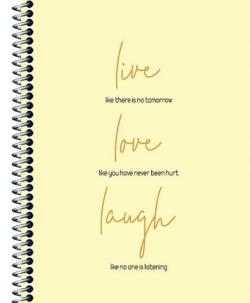 live
like there is no tomorrow
love
like you have never been hurt
laugh
like no one is listening